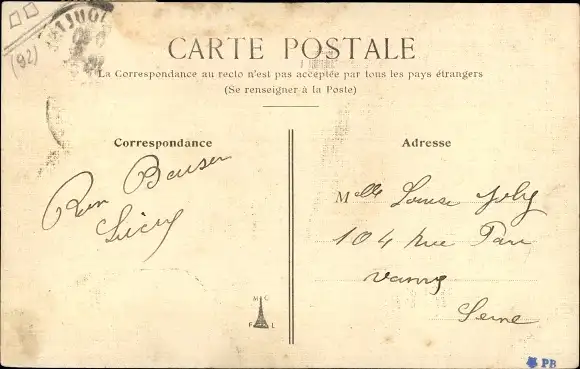 (92)
CARTE POSTALE
La Correspondance au recto n'est pas acceptée par tous les pays étrangers
(Se renseigner à la Poste)
Correspondance
Bon Baiser
Lucy
Adresse
Melle Louise Joly
104 Rue
Vanves
Seine
M C
F L
PB